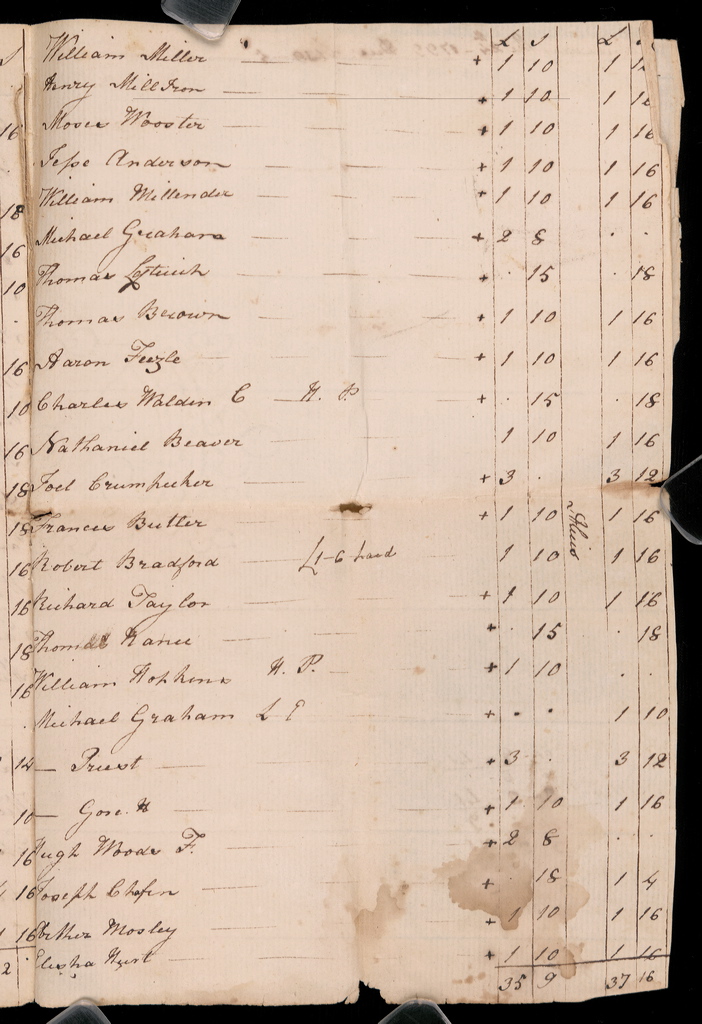 £ S £ S
William Miller + 1 10 1 16
Henry MillIron + 1 10 1 16
16 Moses Wooster + 1 10 1 16
Jesse Anderson + 1 10 1 16
18 William Millender + 1 10 1 16
16 Michael Graham + 2 8 . .
10 Thomas Leftwich + . 15 . 18
. Thomas Brown + 1 10 1 16
16 Aaron Feezle + 1 10 1 16
10 Charles Walden C H. P + . 15 . 18
16 Nathaniel Beaver 1 10 1 16
18 Joel Crumpecker + 3 . 3 12
18 Frances Butler + 1 10 1 16
16 Robert Bradford £1-6 paid 1 10 1 16
16 Richard Taylor + 1 10 1 16
18 Thomas Rance + . 15 . 18
16 William Hopkins H. P. + 1 10 . .
. Michael Graham L E + . . 1 10
14 — Priest + 3 . 3 12
10 — Gose. H + 1 10 1 16
16 Hugh Woods F. + 2 8 . .
16 Joseph Chafin + . 18 1 4
16 Arther Mosley + 1 10 1 16
2 Elisha Hurt + 1 10 1 16
35 9 37 16